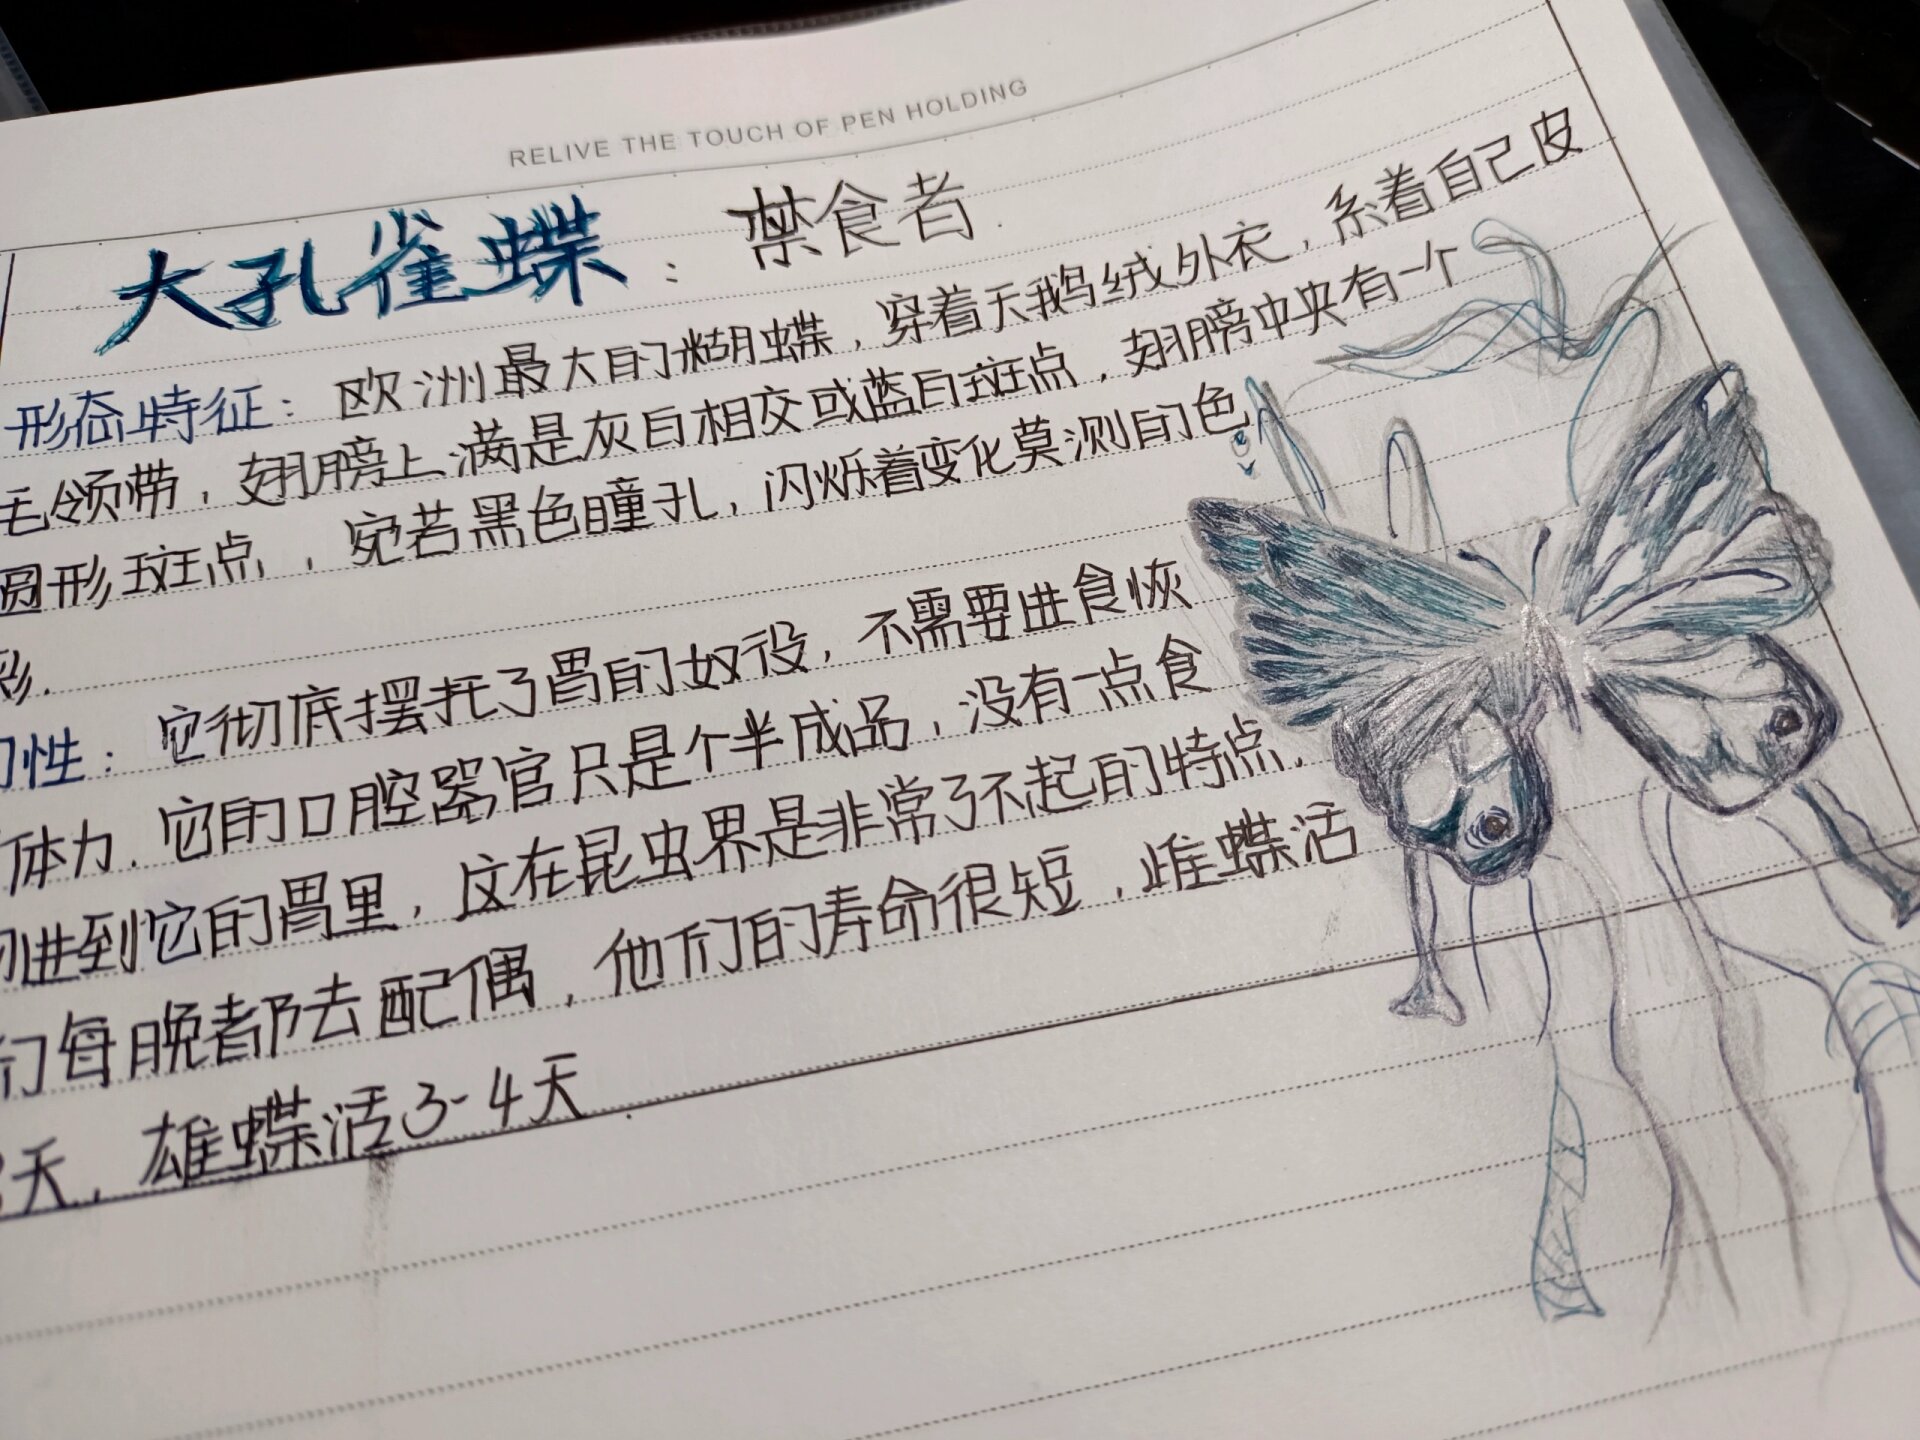 RELIVE THE TOUCH OF PEN HOLDING
大孔雀蝶：禁食者
形态特征：欧洲最大的蝴蝶，穿着天鹅绒外衣，系着自己皮
毛领带，翅膀上满是灰白相交或蓝白斑点，翅膀中央有一个
圆形斑点，，宛若黑色瞳孔，闪烁着变化莫测的色
彩.
性：它彻底摆托了胃的奴役，不需要进食恢
体力.它的口腔器官只是个半成品，没有一点食
进到它的胃里，这在昆虫界是非常了不起的特点.
们每晚都去配偶，他们的寿命很短，雌蝶活
天，雄蝶活3-4天